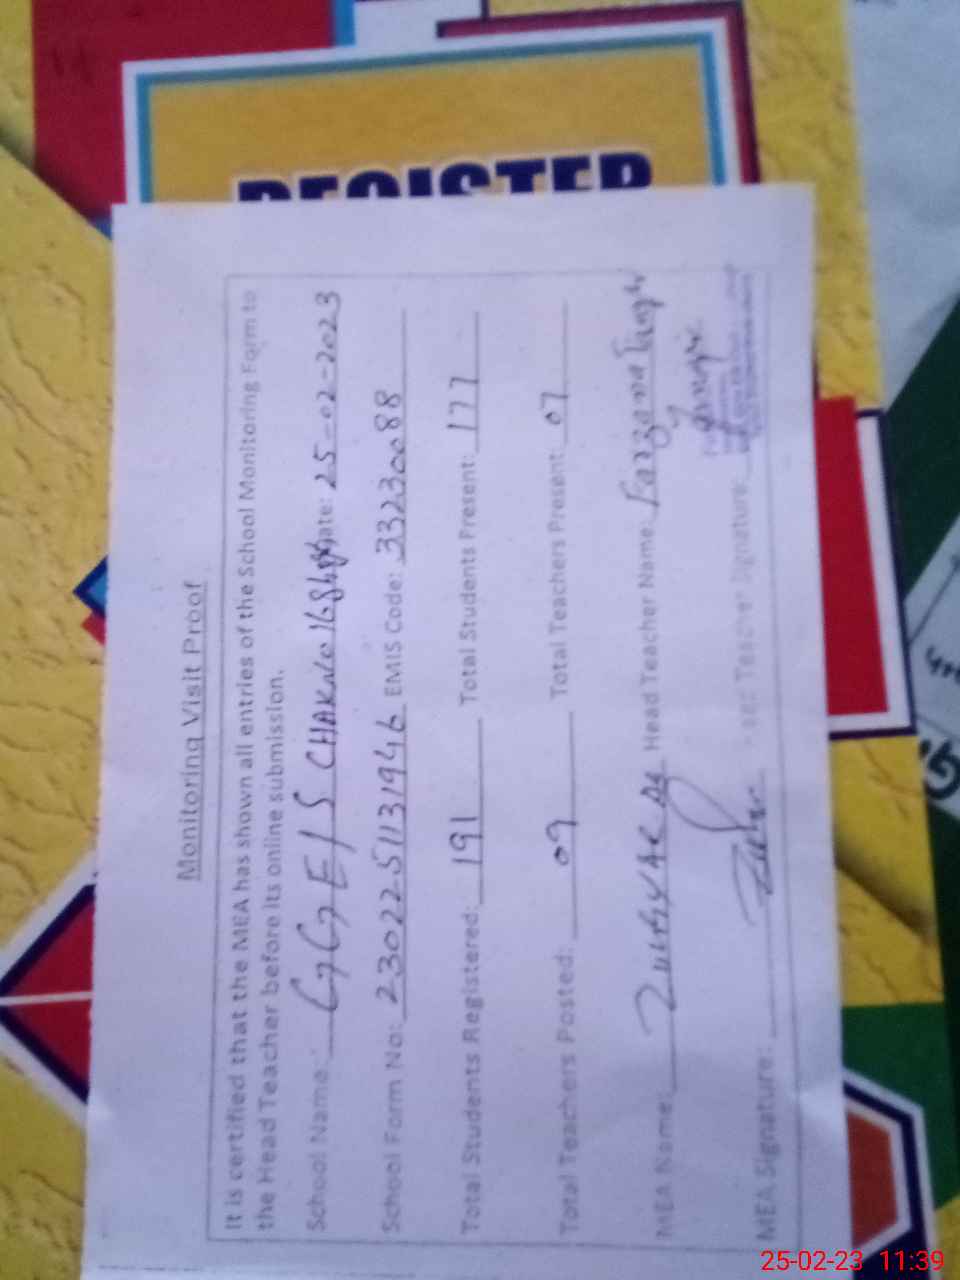 REGISTER
Monitoring Visit Proof
It is certified that the MEA has shown all entries of the School Monitoring Form to
the Head Teacher before its online submission.
School Name: GGE/S CHAK No 168 Date: 25-02-2023
School Form No: 2302251131946 EMIS Code: 33230088
Total Students Registered: 191 Total Students Present: 177
Total Teachers Posted: 09 Total Teachers Present: 07
MEA Name: Head Teacher Name: Farzana
MEA Signature: Head Teacher Signature:
25-02-23 11:39